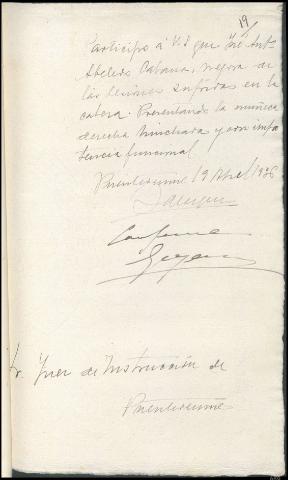 19
Participo á Vd que José Antº
Abeledo Cabana, mejora de
las lesiones sufridas en la
cabeza. Presentando la muñeca
derecha hinchada y con impo
tencia funcional
Puentedeume 19 Abril 1936
Conforme
Sr. Juez de Instrucción de
Puentedeume